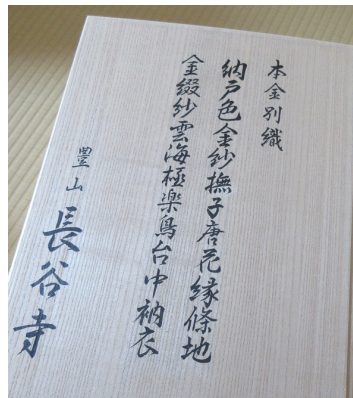 本金別織
納戸色金紗撫子唐花縁條地
金綴紗雲海極楽鳥台中衲衣
豊山 長谷寺